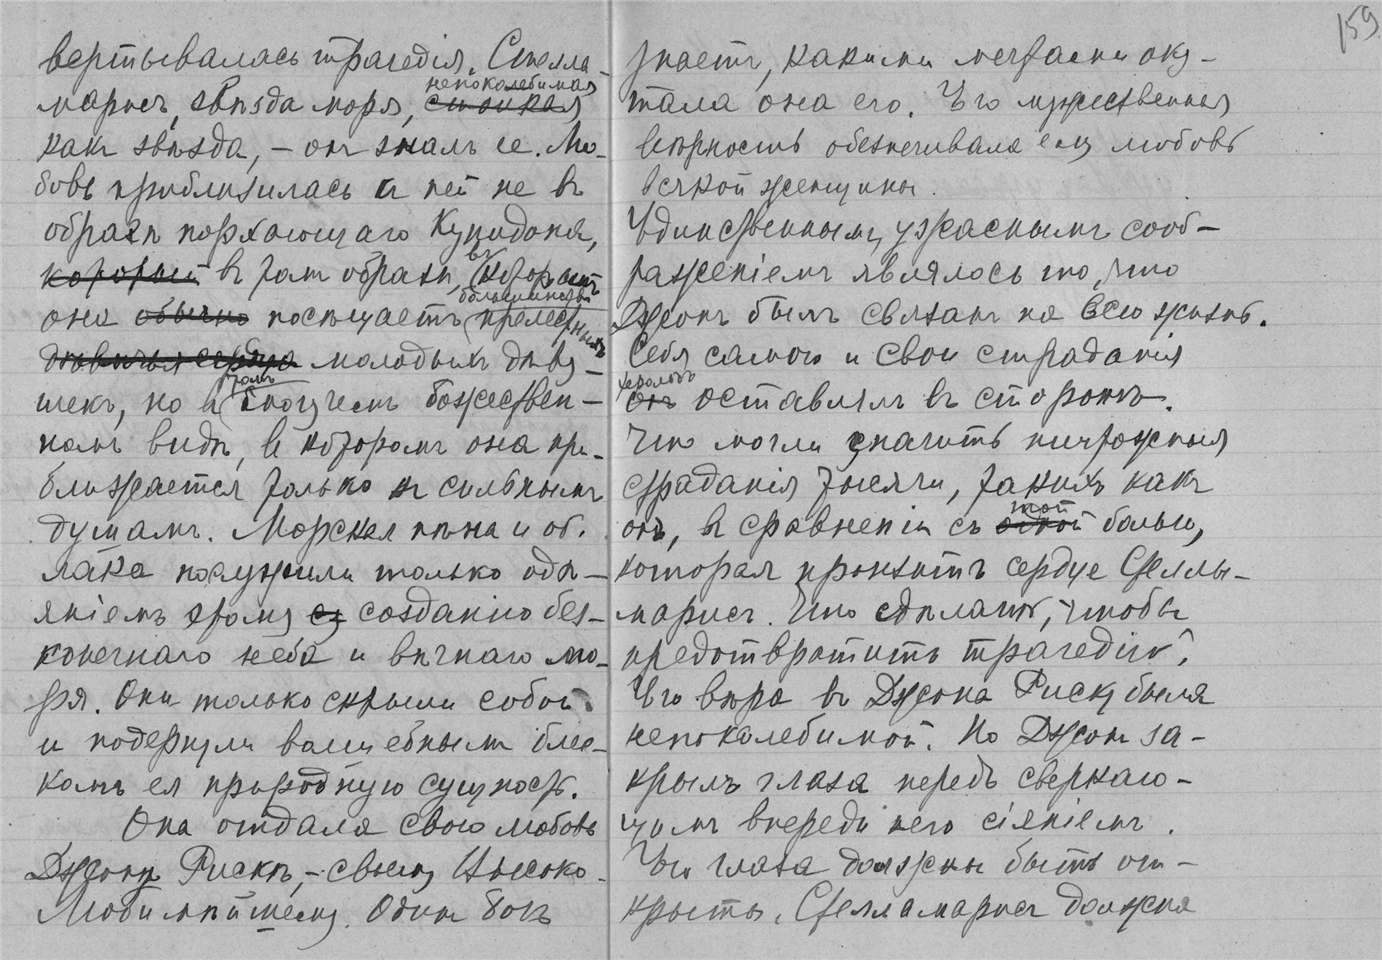 159
вертывалась трагедія. Стелла-
марисъ, звѣзда моря, ~~стойкая~~ непоколебимая
какъ звѣзда, – онъ зналъ ее. Лю-
бовь приблизилась къ ней не въ
образѣ порхающаго Купидона,
~~который~~ въ томъ образѣ, въ которомъ
она ~~обычно~~ посѣщаетъ большинство прелестныхъ
~~дѣвичья сердца~~ молодыхъ дѣву-
шекъ, но въ томъ могучемъ божествен-
номъ видѣ, въ которомъ она при-
ближается только къ сильнымъ
душамъ. Морская пѣна и об-
лака послужили только одѣ-
яніемъ этому созданію без-
конечнаго неба и вѣчнаго мо-
ря. Они только скрыли собой
и подернули волшебнымъ блес-
комъ ея природную сущность.
Она отдала свою любовь
Джону Риску, – своему Высоко-
Любимѣйшему. Одинъ Богъ
знаетъ, какими мечтами оку-
тала она его. Его мужественная
вѣрность обезпечивала ему любовь
всякой женщины.
Единственнымъ ужаснымъ сооб-
раженіемъ являлось то, что
Джонъ былъ связанъ на всю жизнь.
Себя самого и свои страданія
~~онъ~~ Херольдъ оставлялъ въ сторонѣ.
Что могли значить ничтожныя
страданія тысячи, такихъ какъ
онъ, въ сравненіи съ той болью,
которая пронзитъ сердце Стеллы-
марисъ. Что сдѣлать, чтобы
предотвратить трагедію?
Его вѣра въ Джона Риску была
непоколебимой. Но Джонъ за-
крылъ глаза передъ сверкаю-
щимъ впереди него сіяніемъ.
Его глаза должны быть от-
крыты. Стелламарисъ должна